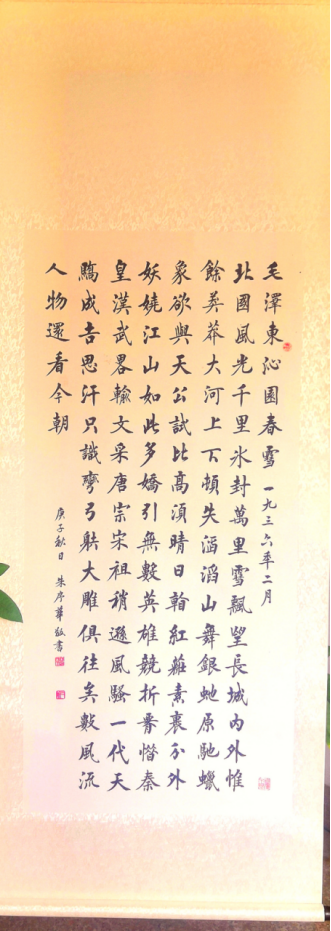 毛澤東沁園春雪一九三六年二月
北國風光千里氷封萬里雪飄望長城内外惟
餘莽莽大河上下頓失滔滔山舞銀蛇原馳蠟
象欲與天公試比高須晴日看紅裝素裹分外
妖嬈江山如此多嬌引無數英雄競折腰惜秦
皇漢武畧輸文采唐宗宋祖稍遜風騷一代天
驕成吉思汗只識彎弓射大雕俱往矣數風流
人物還看今朝
庚子秋日 朱序華敬書